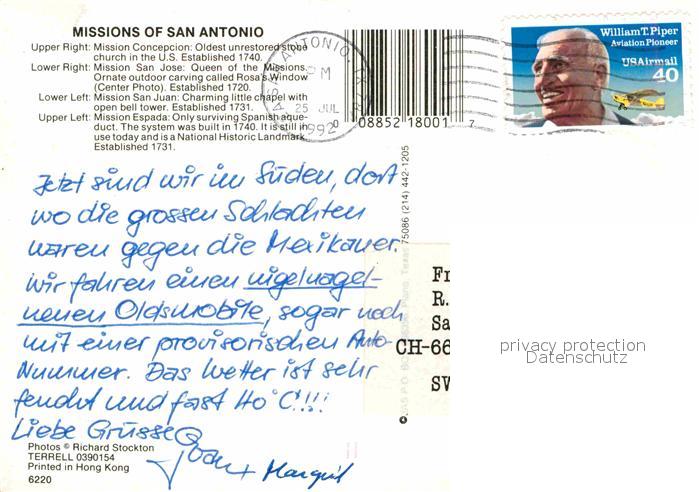 MISSIONS OF SAN ANTONIO
Upper Right: Mission Concepcion: Oldest unrestored stone
church in the U.S. Established 1740.
Lower Right: Mission San Jose: Queen of the Missions.
Ornate outdoor carving called Rosa's Window
(Center Photo). Established 1720.
Lower Left: Mission San Juan: Charming little chapel with
open bell tower. Established 1731.
Upper Left: Mission Espada: Only surviving Spanish aque-
duct. The system was built in 1740. It is still in
use today and is a National Historic Landmark.
Established 1731.
SAN ANTONIO, TX
PM
25 JUL
1992
0 08852 18001 7
William T. Piper
Aviation Pioneer
USAirmail
40
Jetzt sind wir im Süden, dort
wo die grossen Schlachten
waren gegen die Mexikaner.
Wir fahren einen nigelnagel-
neuen Oldsmobile, sogar noch
mit einer provisorischen Auto-
Nummer. Das Wetter ist sehr
feucht und fast 40°C!!!
Liebe Grüsse
+ Margrit
Plano, Texas 75086 (214) 442-1205
P.O. Box
R.
Sa
CH-66
SW
privacy protection
Datenschutz
Photos © Richard Stockton
TERRELL 0390154
Printed in Hong Kong
6220